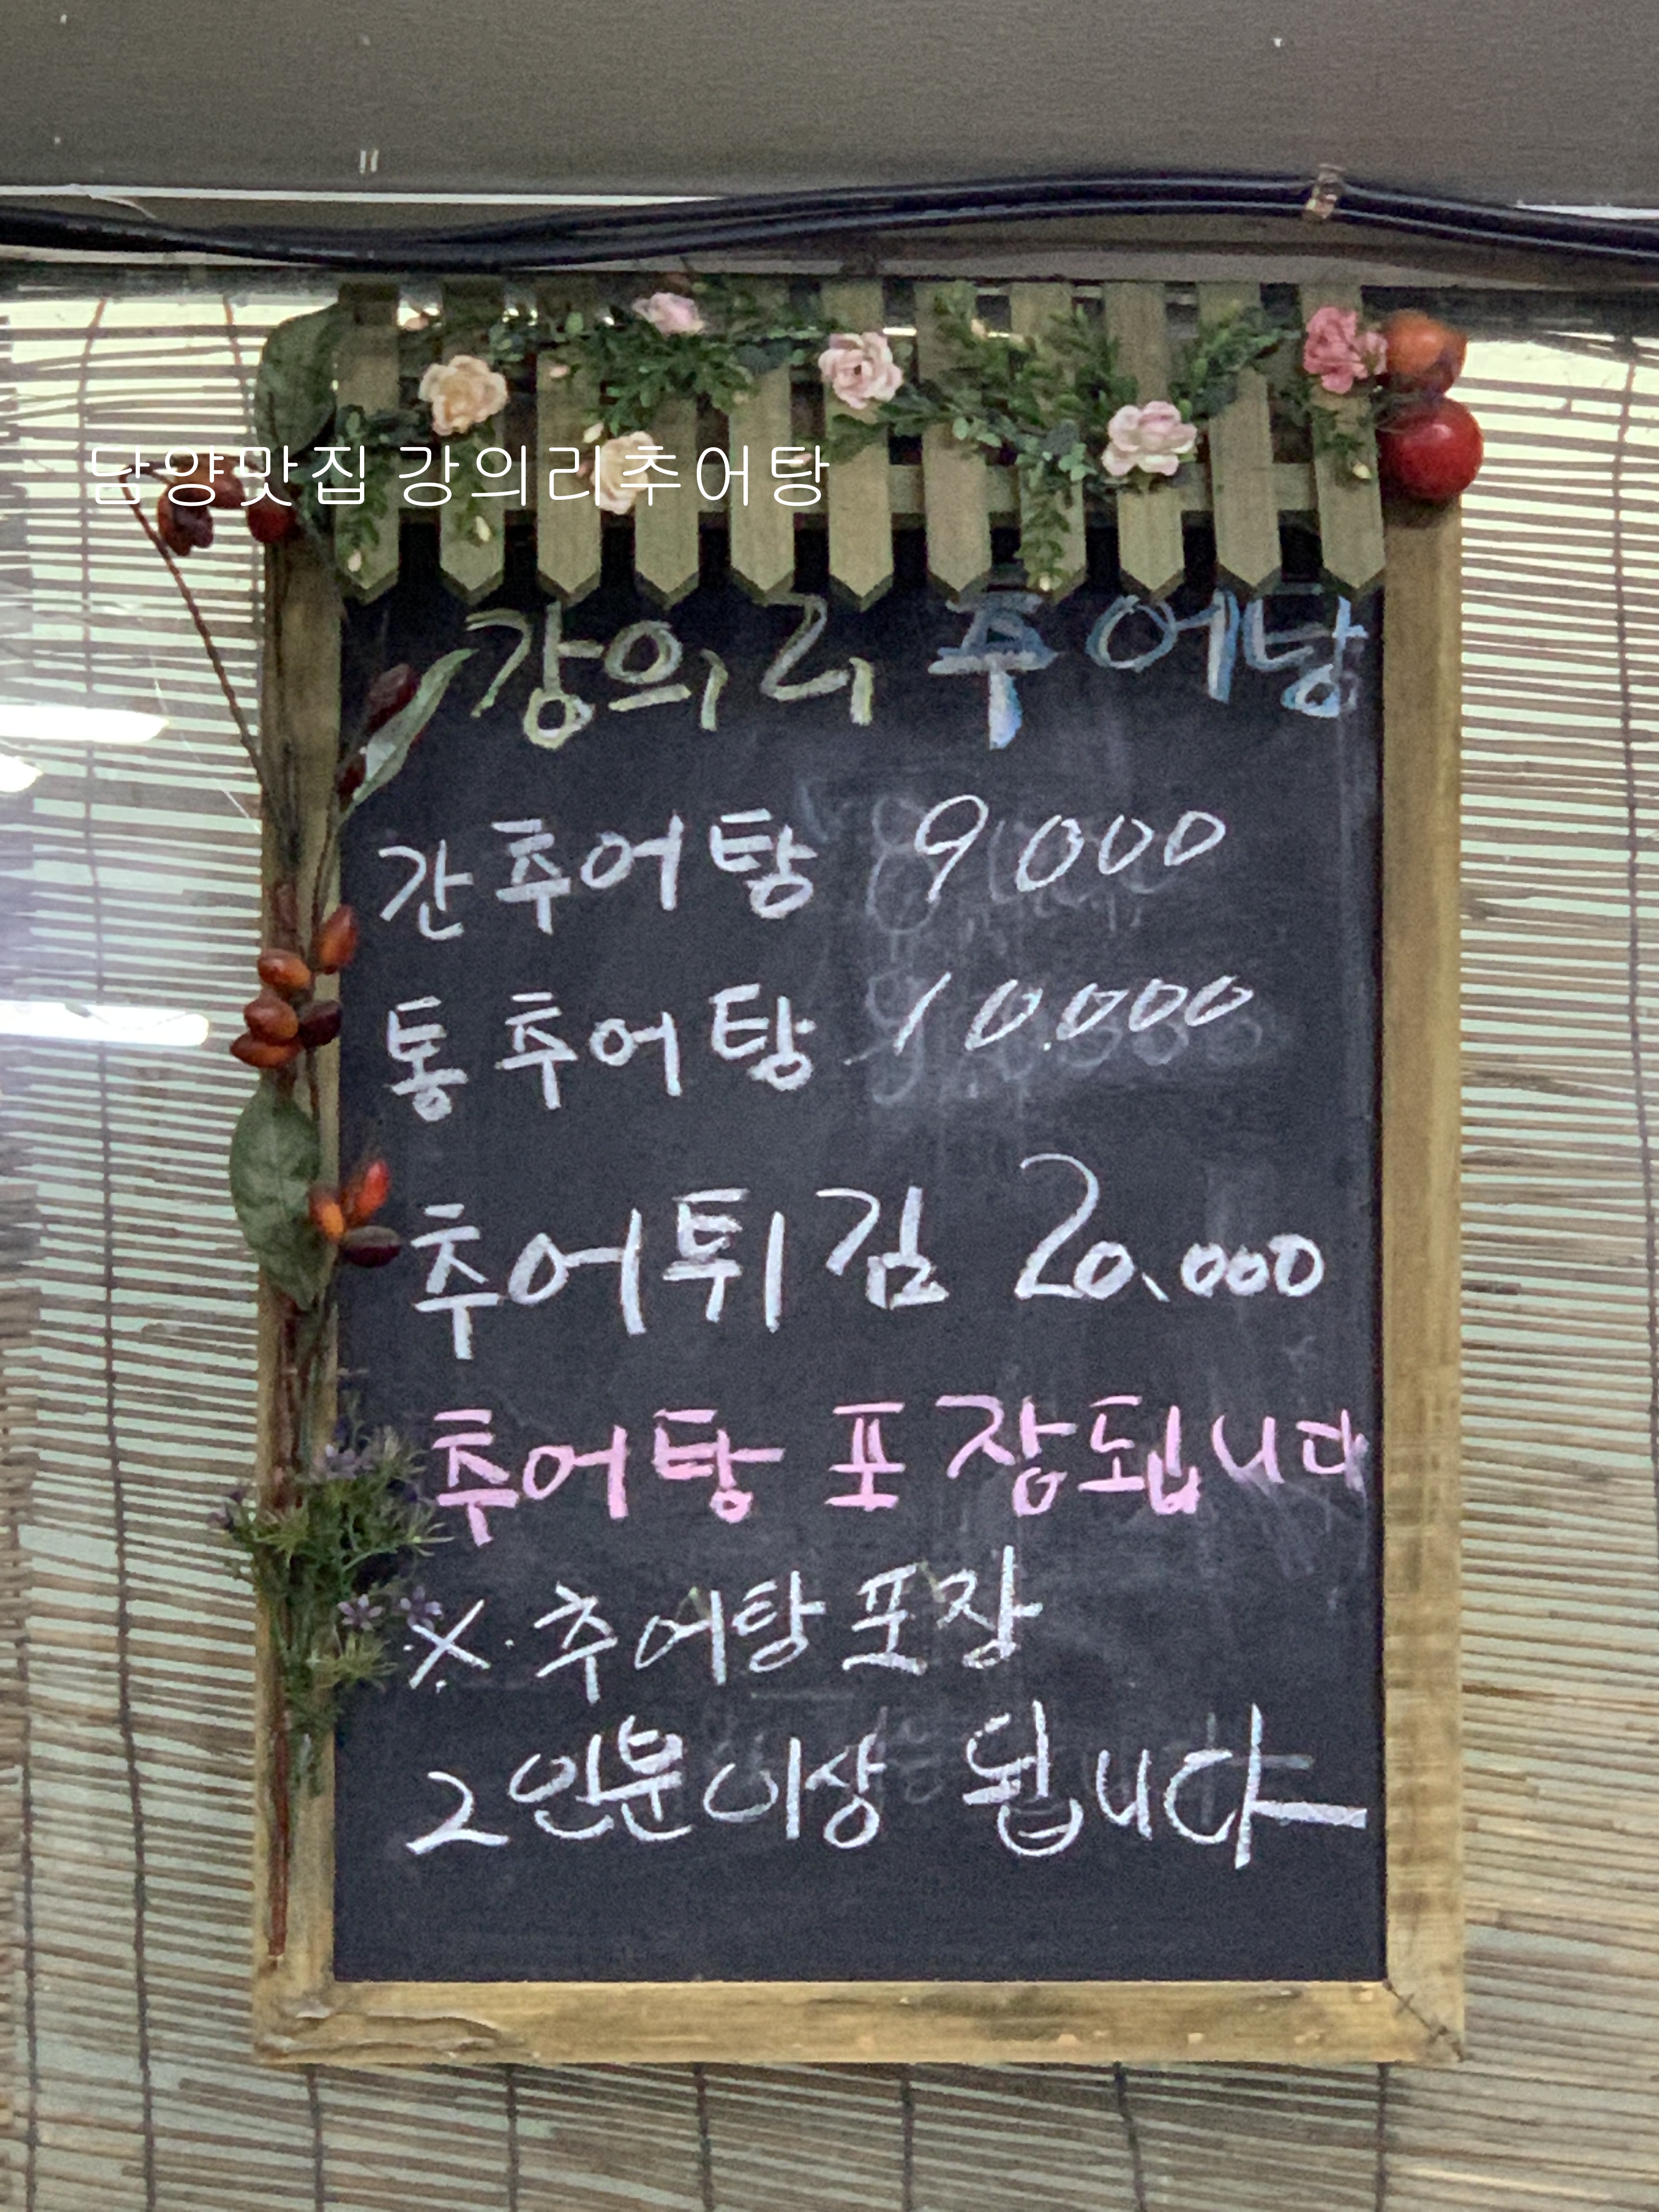 남양맛집 강의리추어탕
강의리 추어탕
간추어탕 9000
통추어탕 10.000
추어튀김 20.000
추어탕 포장됩니다
※ 추어탕포장
2인분이상 됩니다